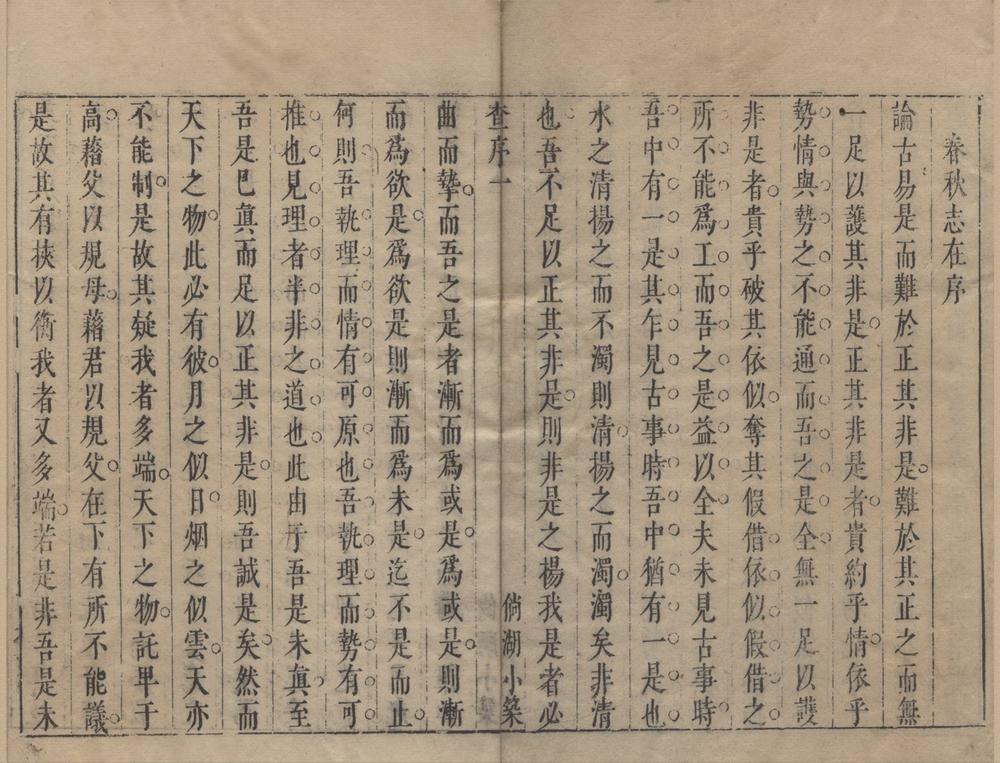 春秋志在序
論古易是而難於正其非是難於其正之而無
一足以護其非是正其非是者貴約乎情依乎
勢情與勢之不能通而吾之是全無一足以護
非是者貴乎破其依似奪其假借依似假借之
所不能爲工而吾之是益以全夫未見古事時
吾中有一是其乍見古事時吾中猶有一是也
水之清揚之而不濁則清揚之而濁濁矣非清
也吾不足以正其非是則非是之楊我是者必
查序一
倘湖小築
曲而摯而吾之是者漸而爲或是爲或是則漸
而爲欲是爲欲是則漸而爲未是迄不是而止
何則吾執理而情有可原也吾執理而勢有可
推也見理者半非之道也此由于吾是未真至
吾是已真而足以正其非是則吾誠是矣然而
天下之物此必有彼月之似日烟之似雲天亦
不能制是故其疑我者多端天下之物託卑于
高藉父以規母藉君以規父在下有所不能議
是故其有挾以衡我者又多端若是非吾是未